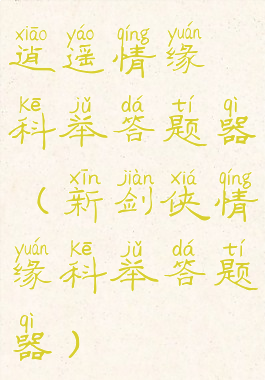 xiāo yáo qíng yuán
逍遥情缘
kē jǔ dá tí qì
科举答题器
xīn jiàn xiá qíng
（新剑侠情
yuán kē jǔ dá tí
缘科举答题
qì
器）